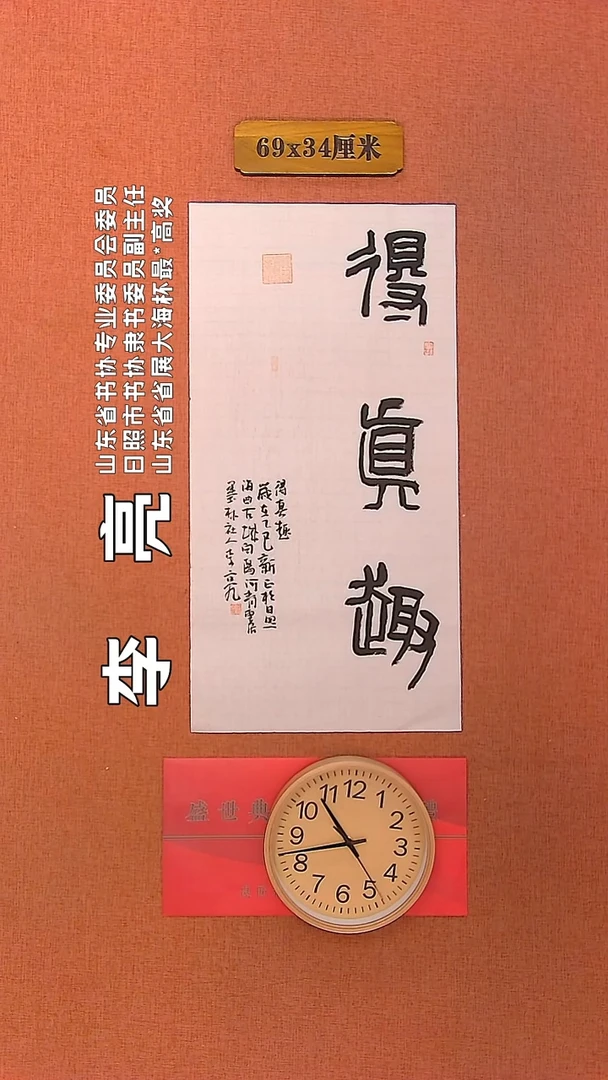 69x34厘米
得真趣
得真趣
歲在乙巳新正於日照
海曲古城向陽河青雲居
墨朴社人李亮
山东省书协专业委员会委员
日照市书协隶书委员副主任
山东省省展大海杯最*高奖
李亮
盛世典
12
1
2
3
4
5
6
7
8
9
10
11